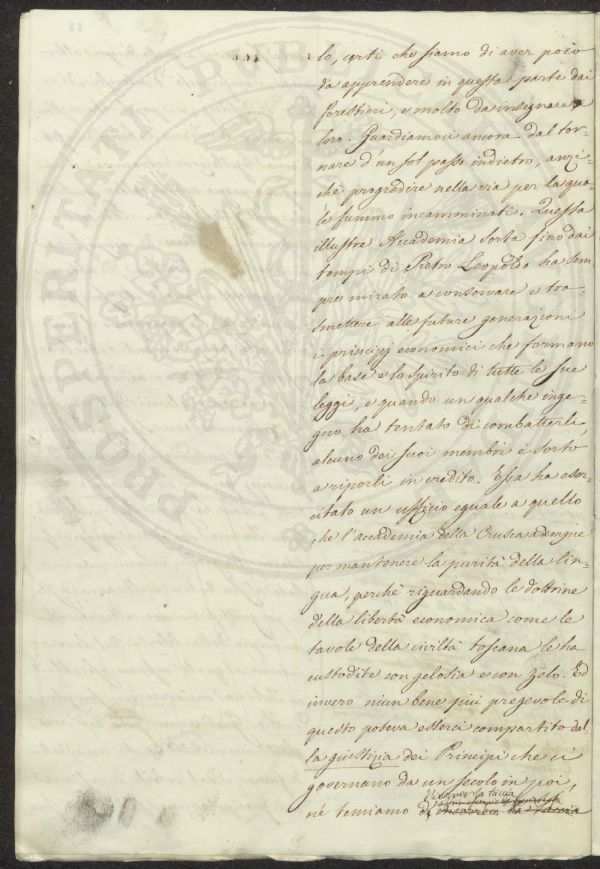 lo, certi che siamo di aver poco
da apprendere in questa parte dai
forestieri, e molto da insegnare a
loro. Guardiamoci ancora dal tor-
nare d'un sol passo indietro, anzi-
chè progredire nella via per la qua-
le fummo incamminati. Questa
illustre Accademia sorta fino dai
tempi di Pietro Leopoldo ha sem
pre mirato a conservare e tra-
smettere alle future generazioni
i principj economici che formano
la base e lo spirito di tutte le sue
leggi, e quando un qualche inge-
gno ha tentato di combatterli,
alcuno dei suoi membri è sorto
a riporli in credito. Essa ha eser-
citato un ufficio eguale a quello
che l'accademia della Crusca adempie
per mantenere la purità della lin-
gua, perchè riguardando le dottrine
della libertà economica come le
tavole della civiltà toscana le ha
custodite con gelosia e con zelo. Ed
invero niun bene più pregevole di
questo poteva esserci compartito dal-
la giustizia dei Principi che ci
governano da un secolo in poi,
la taccia
nè temiamo la taccia
PROSPERITATI PUBL